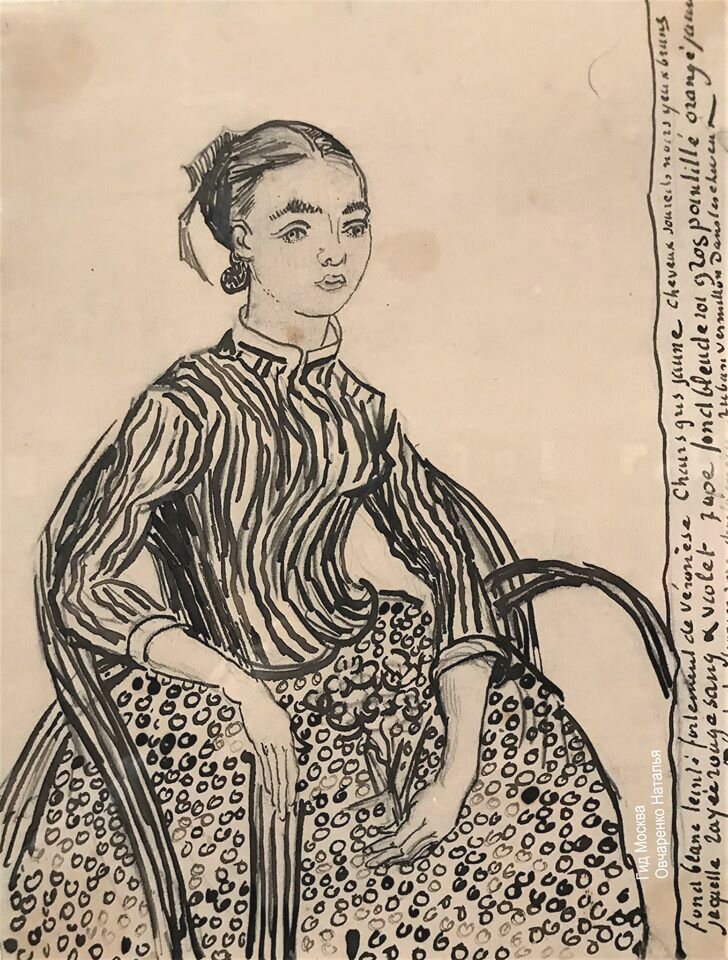 fond blanc teinté fortement de véronèse Chairs gris jaune cheveux sourcils noirs yeux bruns
jaquette rayée rouge sang & violet jupe fond bleu de roi gros pointillé orangé jaune
ruban vermillon dans les cheveux
Гид Москва
Овчаренко Наталья